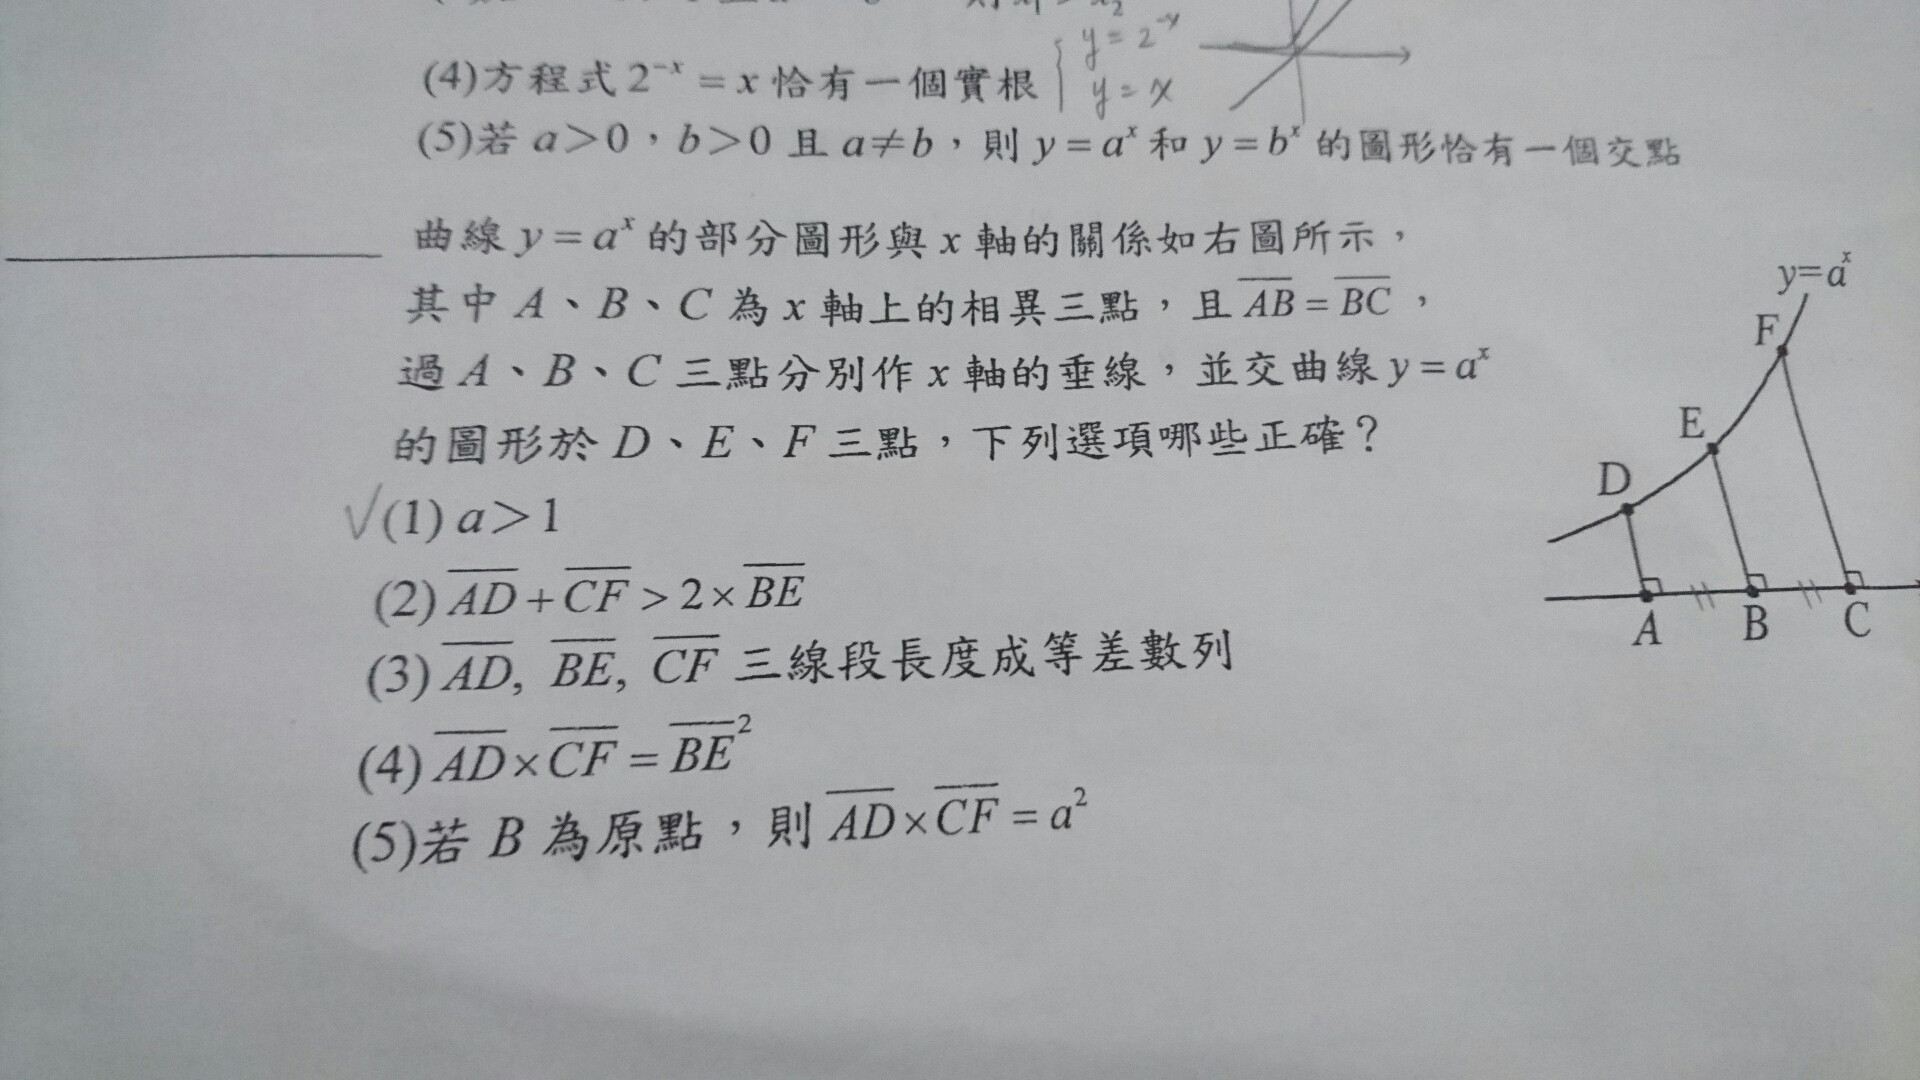 (4)方程式 2⁻ˣ = x 恰有一個實根 { y = 2⁻ˣ
y = x
(5)若 a>0,b>0 且 a≠b,則 y = aˣ 和 y = bˣ 的圖形恰有一個交點
曲線 y = aˣ 的部分圖形與 x 軸的關係如右圖所示,
其中 A、B、C 為 x 軸上的相異三點,且 A̅B̅ = B̅C̅,
過 A、B、C 三點分別作 x 軸的垂線,並交曲線 y = aˣ
的圖形於 D、E、F 三點,下列選項哪些正確?
√(1) a>1
(2) A̅D̅ + C̅F̅ > 2 × B̅E̅
(3) A̅D̅, B̅E̅, C̅F̅ 三線段長度成等差數列
(4) A̅D̅ × C̅F̅ = B̅E̅²
(5)若 B 為原點,則 A̅D̅ × C̅F̅ = a²
y=aˣ
F
E
D
A B C